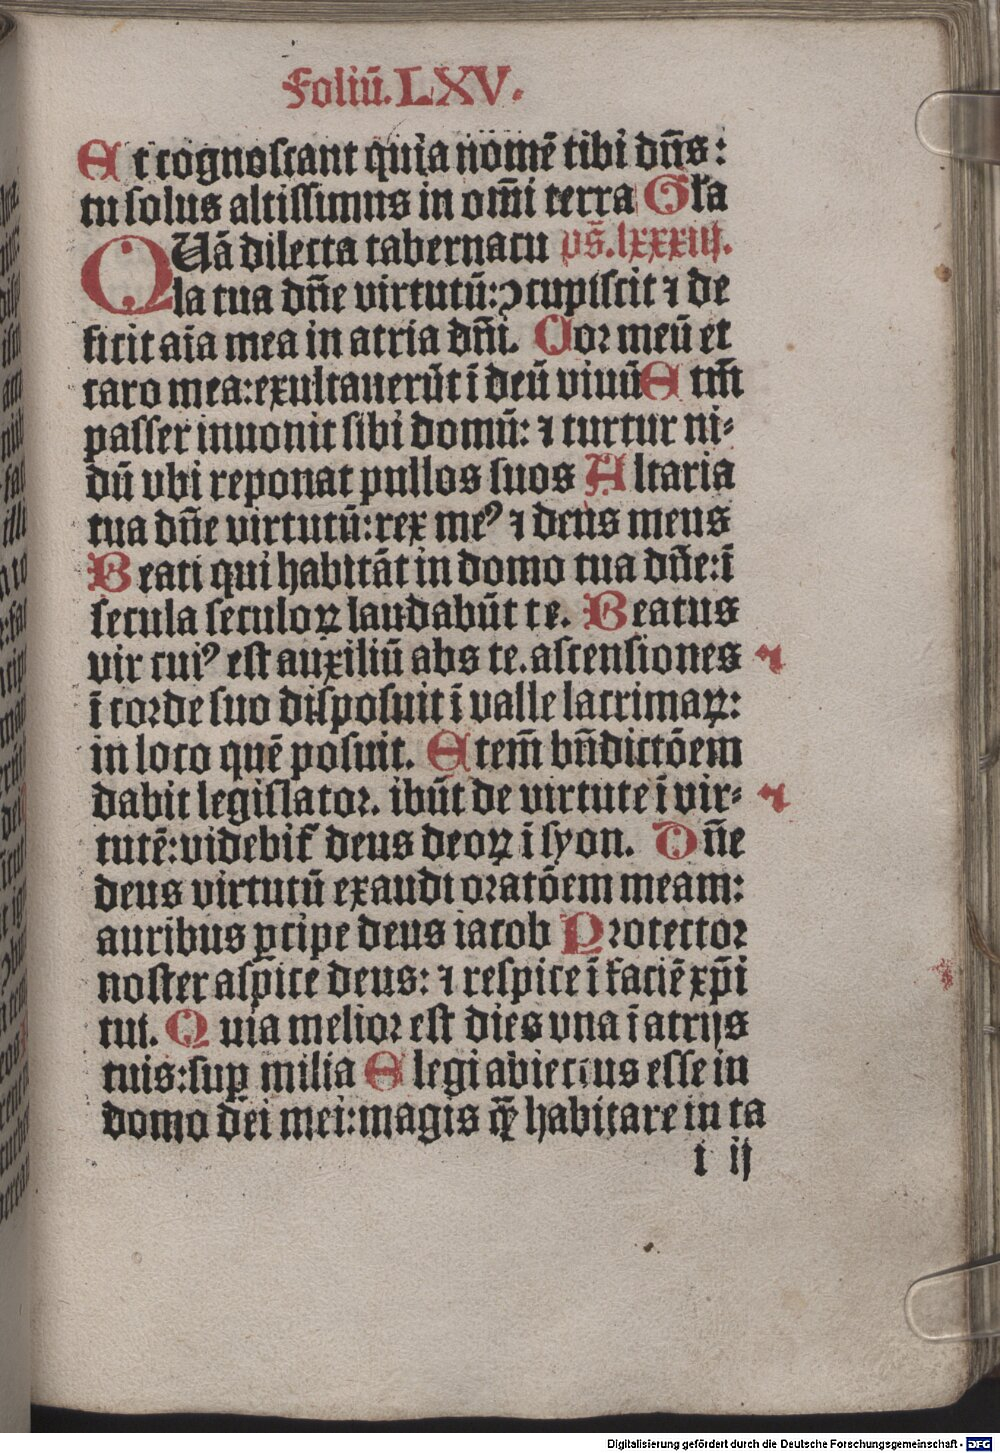 Foliū. LXV.
Et cognoscant quia nomē tibi dn̄s :
tu solus altissimus in om̄i terra Gl'a
QUā dilecta tabernacu ps̄. lxxxiij.
la tua dn̄e virtutū: ↄcupiscit ⁊ de
ficit aīa mea in atria dn̄i. Cor meū et
caro mea: exultauerūt ī deū viuū Etm̄
passer inuonit sibi domū: ⁊ turtur ni⸗
dū vbi reponat pullos suos Altaria
tua dn̄e virtutū: rex meꝰ ⁊ deus meus
Beati qui habitāt in domo tua dn̄e: ī
secula seculoꝝ laudabūt te. Beatus
vir cuiꝰ est auxiliū abs te. ascensiones ⁊
ī corde suo disposuit ī valle lacrimaꝝ:
in loco quē posuit. Etem̄ bn̄dictōem
dabit legislator. ibūt de virtute ī vir⸗ ⁊
tutē: videbit᷑ deus deoꝝ ī syon. Dn̄e
deus virtutū exaudi oratōem meam:
auribus ꝑcipe deus iacob Protector
noster aspice deus: ⁊ respice ī faciē xp̄i
tui. Quia melior est dies vna ī atrijs
tuis: suꝑ milia Elegi abiectus esse in
domo dei mei: magis q̄ꝫ habitare in ta
i ij
Digitalisierung gefördert durch die Deutsche Forschungsgemeinschaft - DFG